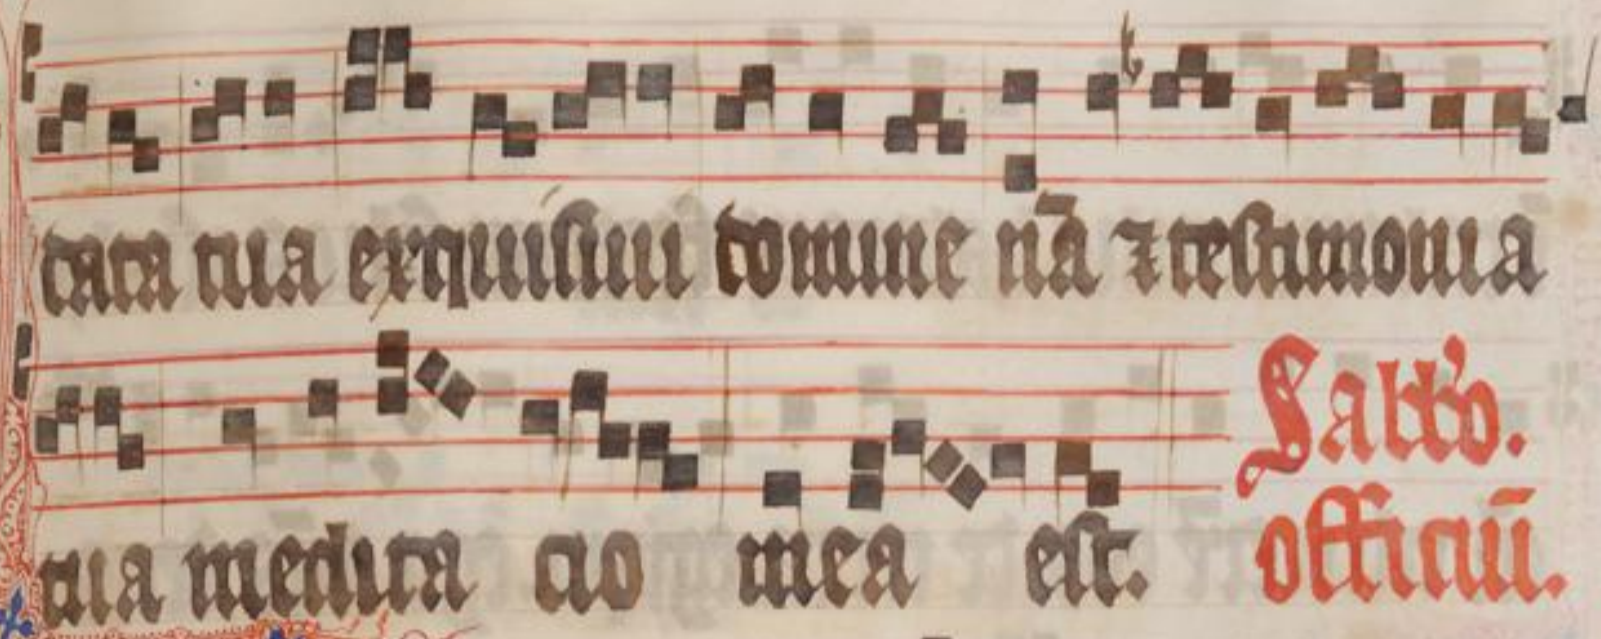 tata tua exquisiui domine nā ⁊ testimonia
tua medita cio mea est. Salt'o.
officiū.